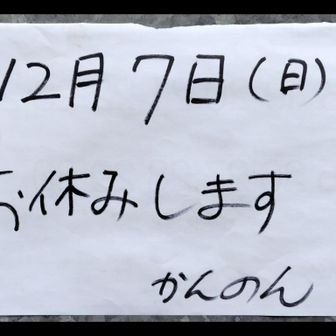 12月7日(日)
お休みします
かんのん